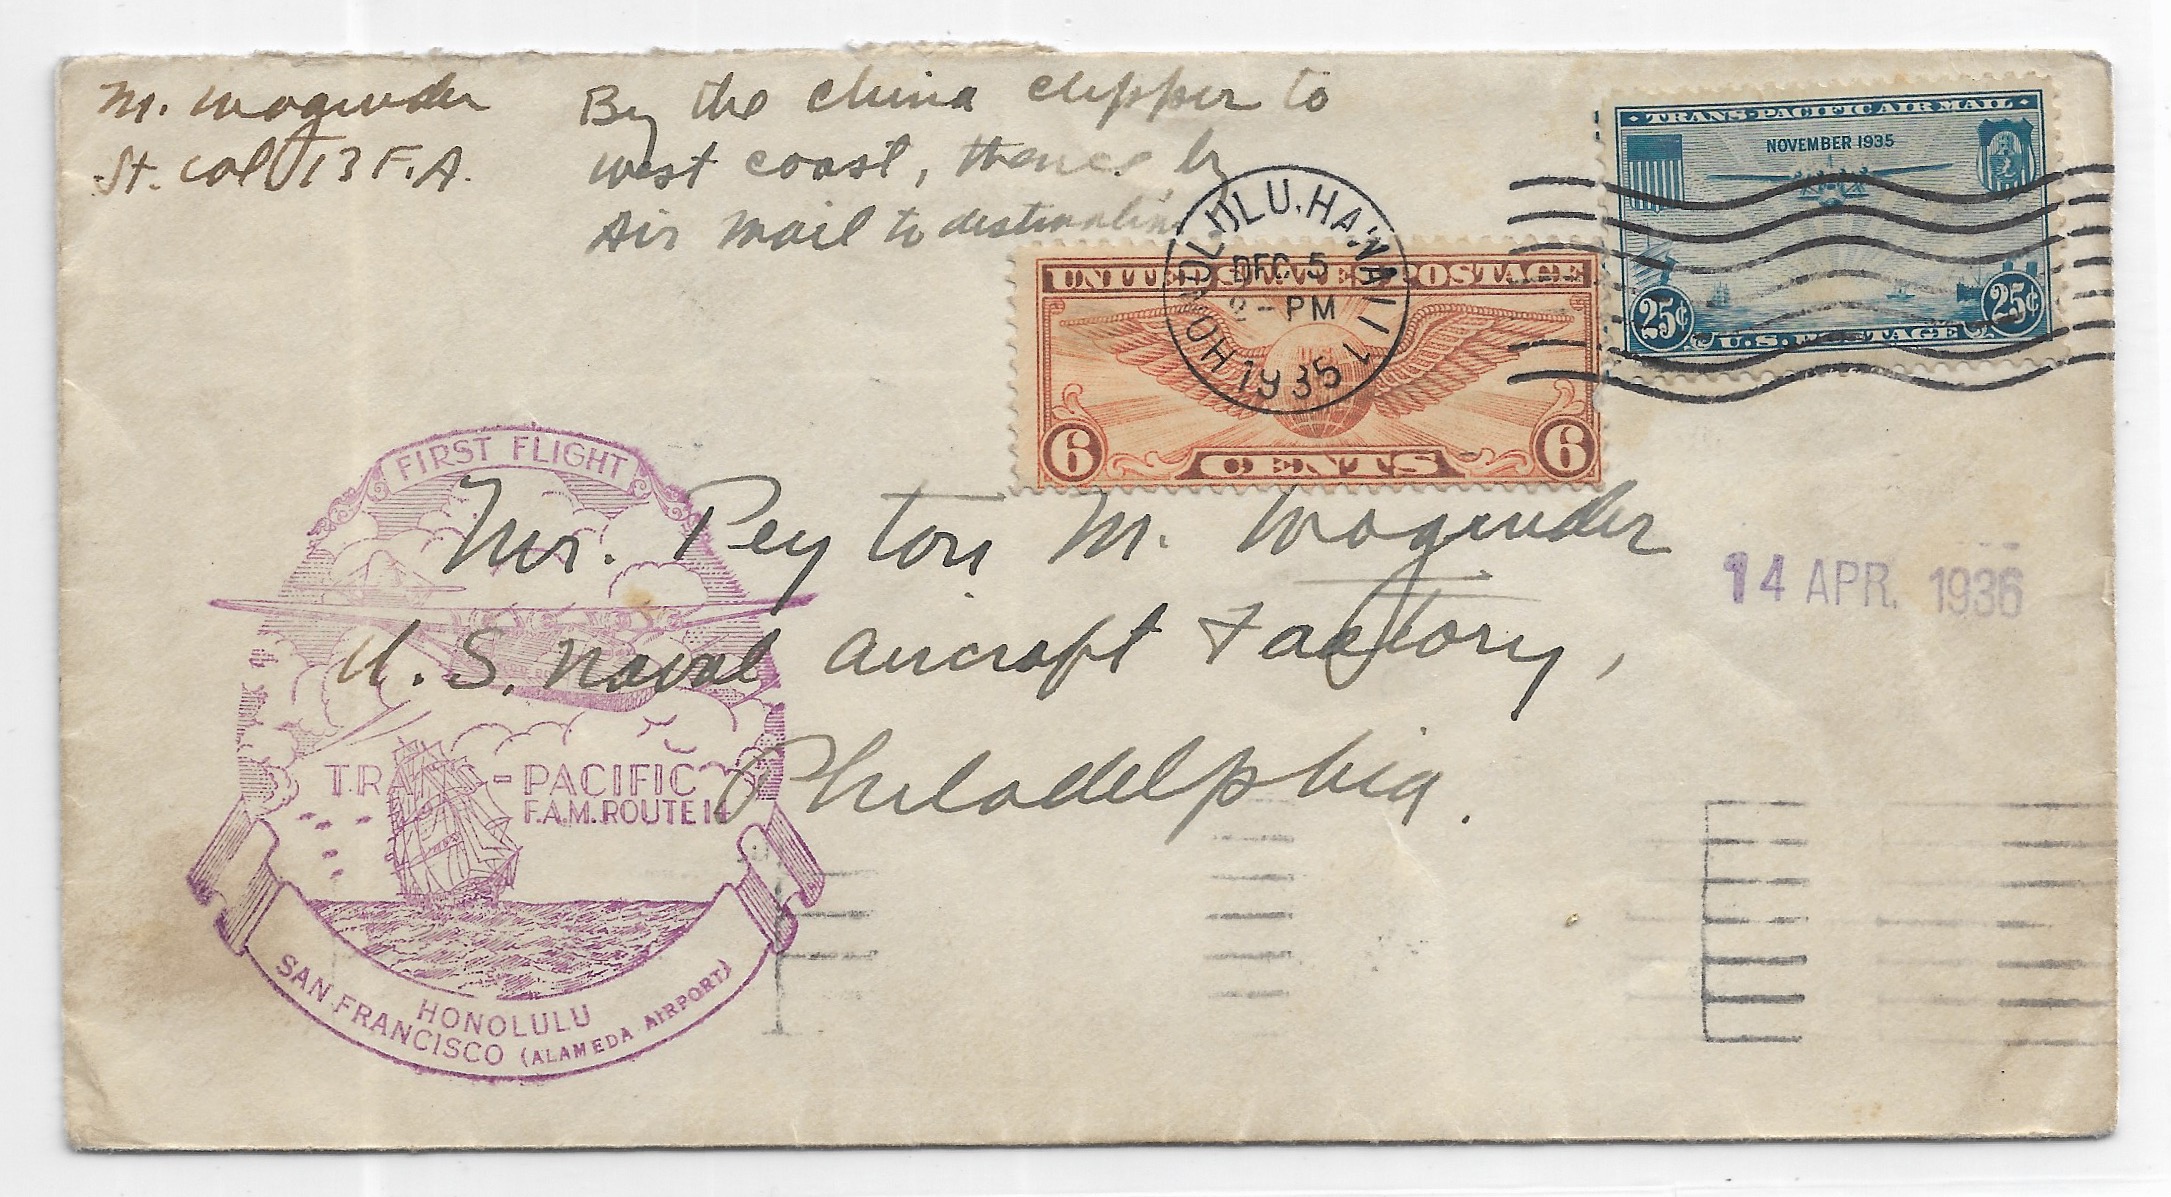 M. Magruder
Lt. Col 13 F.A.
By the China Clipper to
west coast, thence by
Air Mail to destination
TRANS-PACIFIC AIR MAIL
NOVEMBER 1935
25¢ 25¢
U.S. POSTAGE
HONOLULU, HAWAII
DEC 5
2-PM
1935
1
UNITED STATES POSTAGE
6 CENTS 6
FIRST FLIGHT
TRANS-PACIFIC
F.A.M. ROUTE 14
HONOLULU
SAN FRANCISCO (ALAMEDA AIRPORT)
Mr. Peyton M. Magruder
U. S. Naval Aircraft Factory,
Philadelphia.
14 APR. 1936